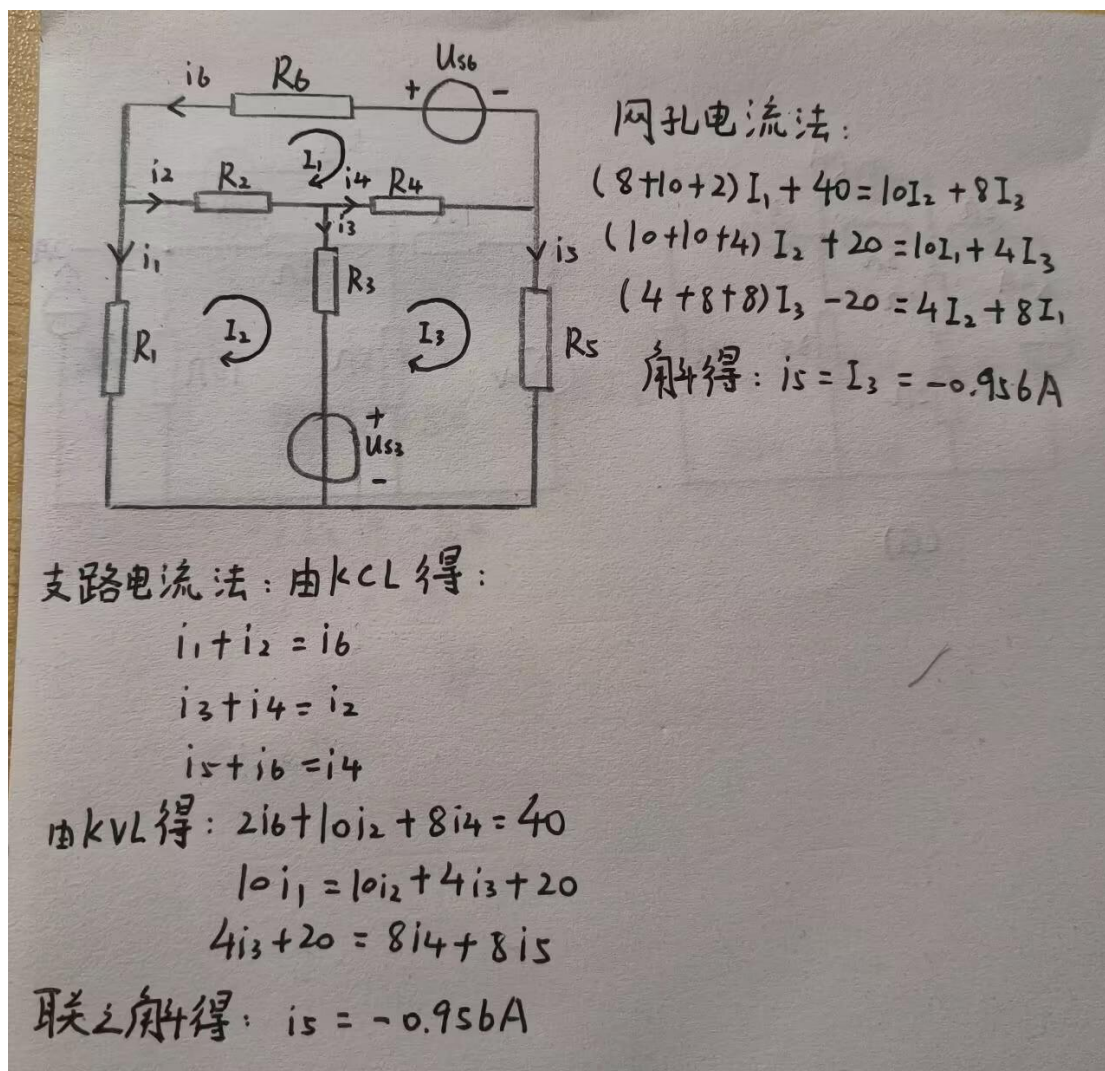 i6 R6 + Us6 -
I1
i2 R2 i4 R4
i3
i1 R3 i5
R1 I2 I3 R5
+
Us3
-
网孔电流法:
(8+10+2)I1+40=10I2+8I3
(10+10+4)I2+20=10I1+4I3
(4+8+8)I3-20=4I2+8I1
解得: i5=I3=-0.956A
支路电流法:由KCL得:
i1+i2=i6
i3+i4=i2
i5+i6=i4
由KVL得: 2i6+10i2+8i4=40
10i1=10i2+4i3+20
4i3+20=8i4+8i5
联立解得: i5=-0.956A